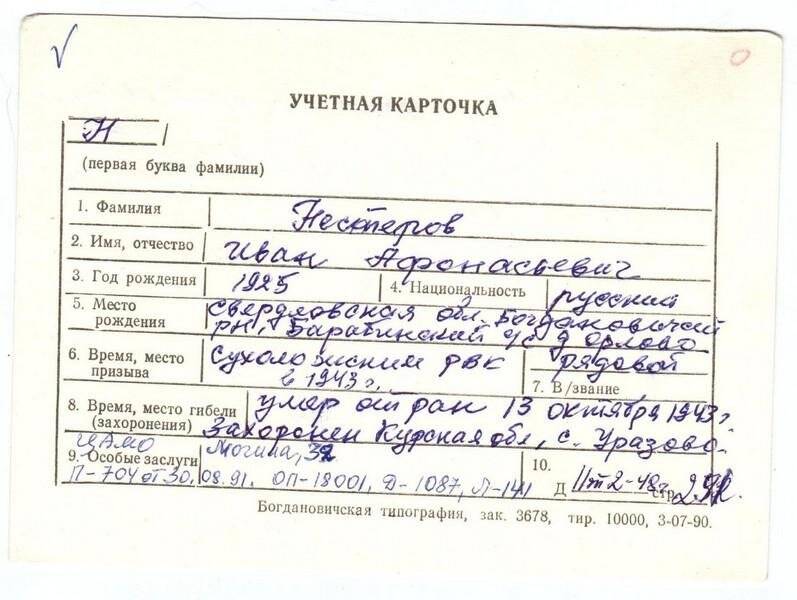 УЧЕТНАЯ КАРТОЧКА
Н
(первая буква фамилии)
1. Фамилия Нестеров
2. Имя, отчество Иван Афонасьевич
3. Год рождения 1925 4. Национальность русский
5. Место рождения Свердловская обл. Богдановичский
рн, Барабинский с/с д. Орлово
6. Время, место призыва Сухоложским РВК
в 1943 г.
рядовой
7. В/звание
8. Время, место гибели (захоронения) умер от ран 13 октября 1943г
Захоронен Курская обл, с. Уразово.
ЦАМО Могила, 32
9. Особые заслуги
П-704 от 30.08.91. ОП-18001, Д-1087, Л-141
10.
Д стр.
Богдановичская типография, зак. 3678, тир. 10000, 3-07-90.